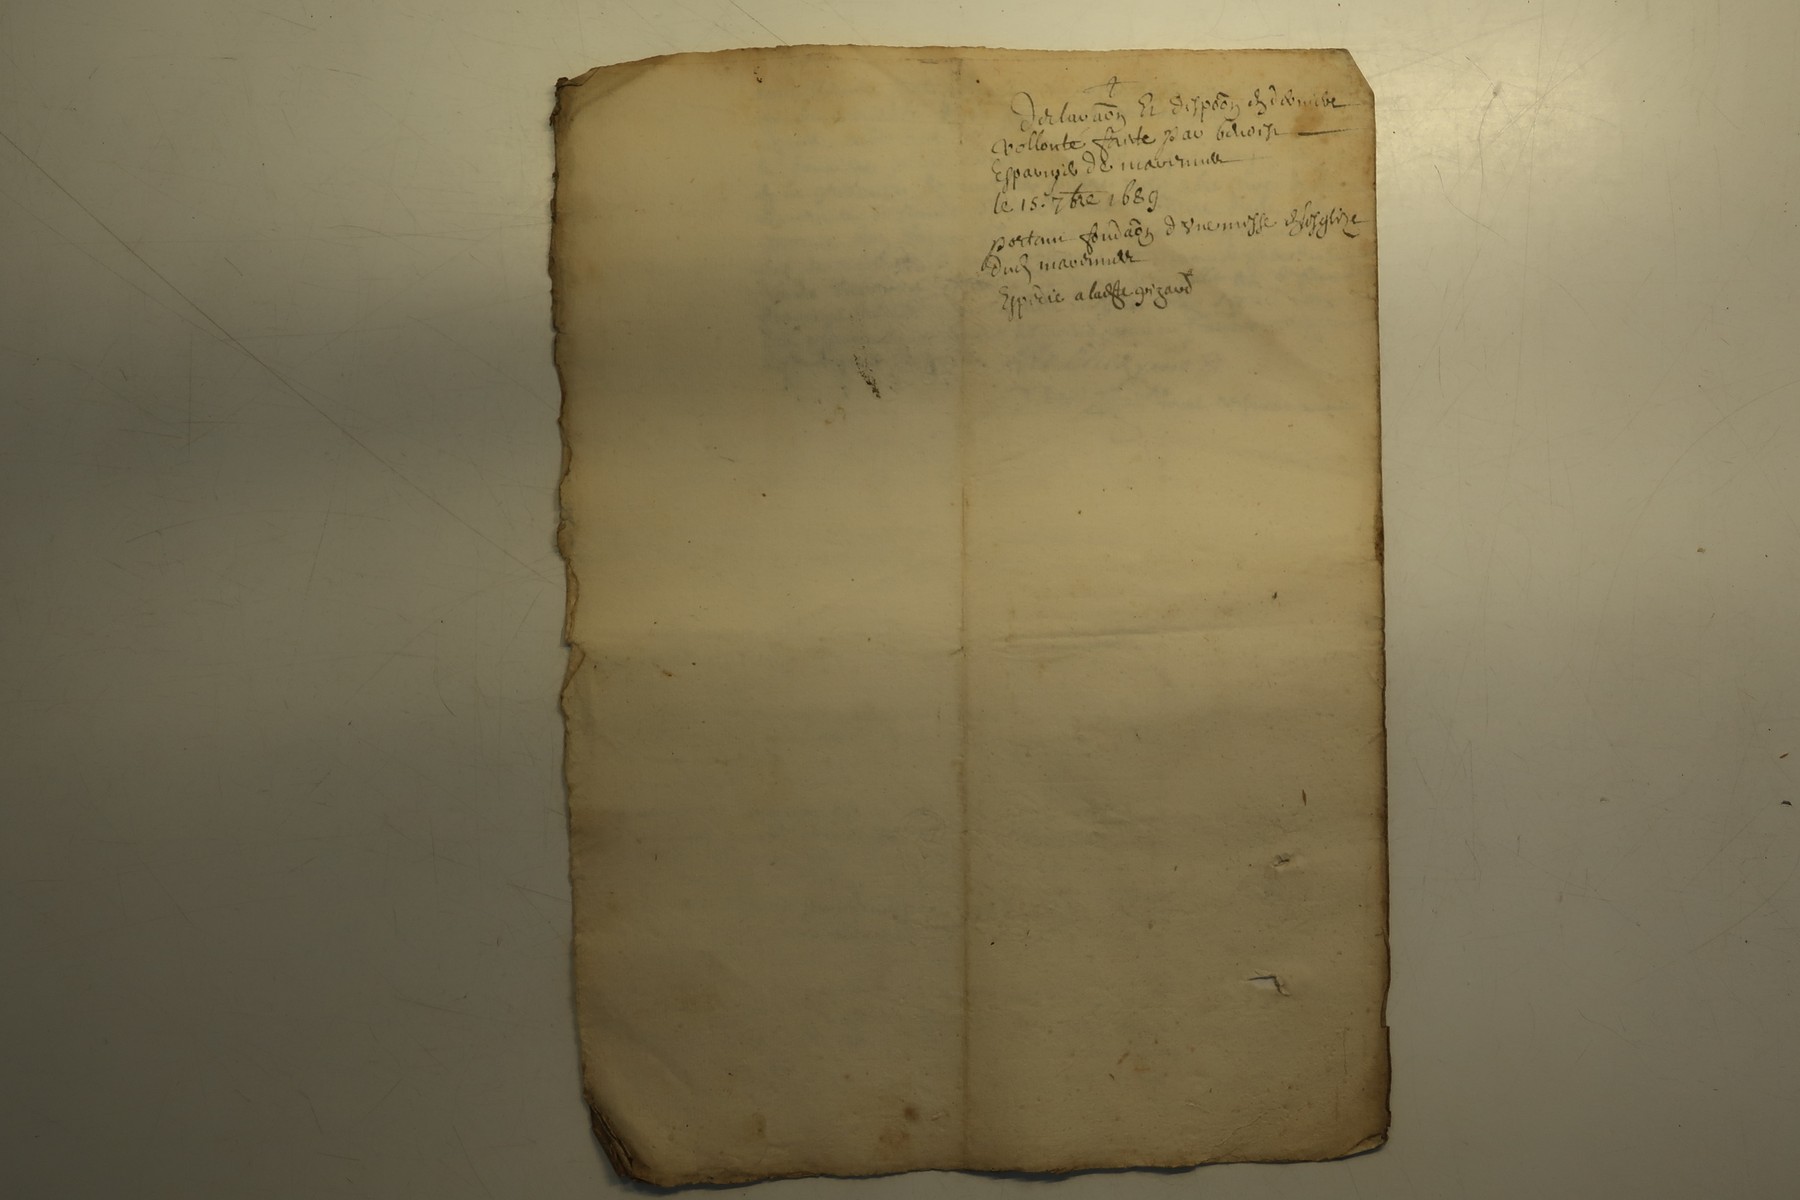 †
Declaraõn Et dispõon de derniere
vollonte faicte par benoist
Esparvier de marennes
le 15. 7bre 1689
portant fondaõn d'Vne messe En l'Esglize
dud marennes
Expedie a la